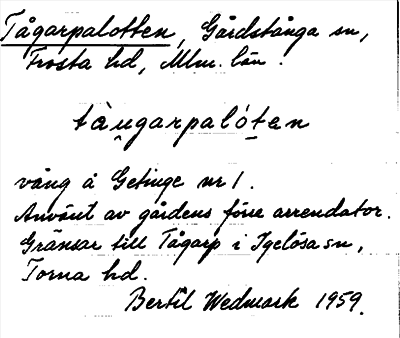 Tågarpalotten, Gårdstånga sn,
Frosta hd, Mlm. län.
tàu̯garpalótan
vång å Getinge nr 1.
Använt av gårdens förre arrendator.
Gränsar till Tågarp i Igelösa sn,
Torna hd.
Bertil Wedmark 1959.